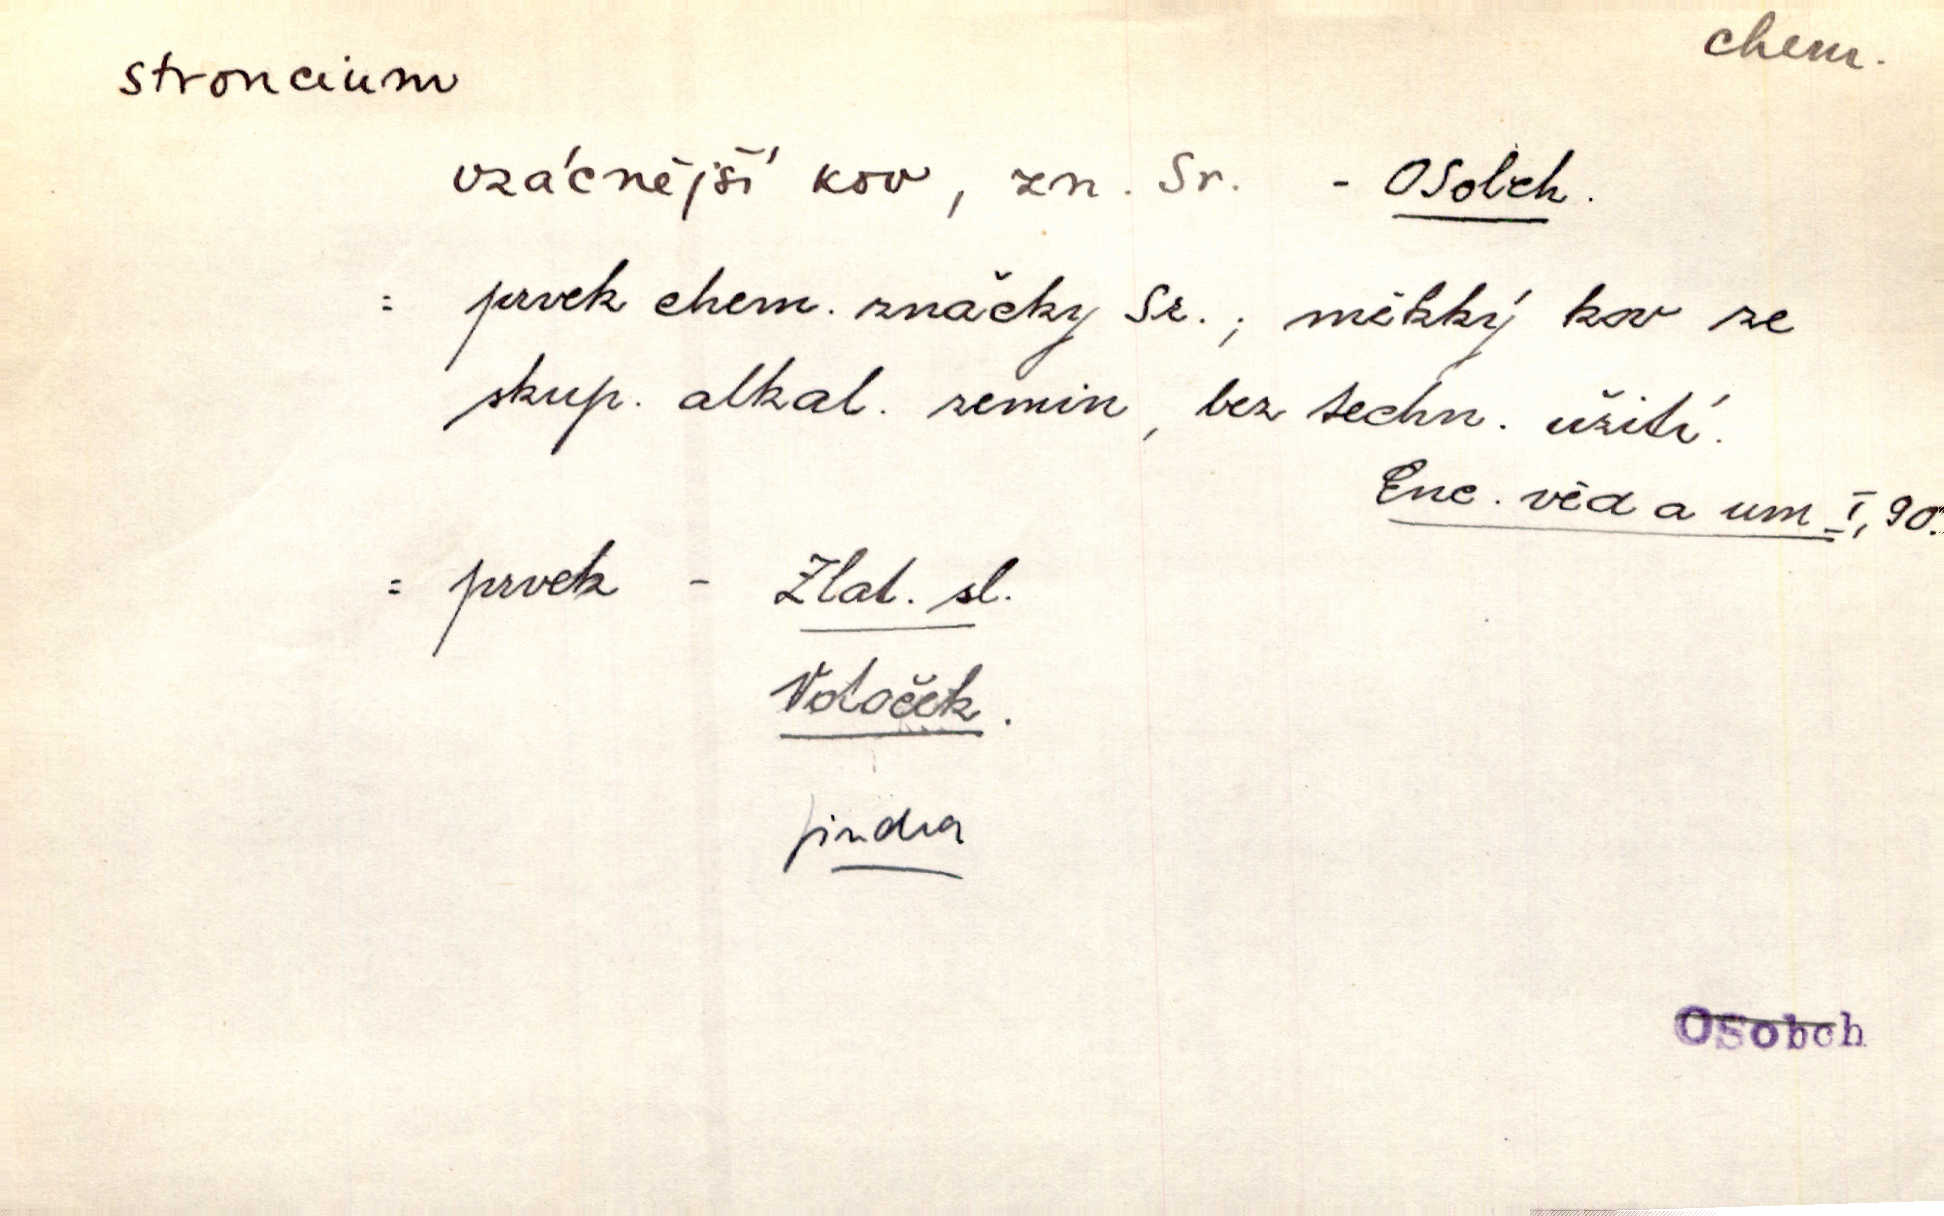 chem.
stroncium
vzácnější kov, zn. Sr. - OSobch.
= prvek chem. značky Sr.; měkký kov ze
skup. alkal. zemin, bez techn. užití.
Enc. věd a um I, 90.
= prvek - Zlat. sl.
Votoček.
Jindra
OSobch